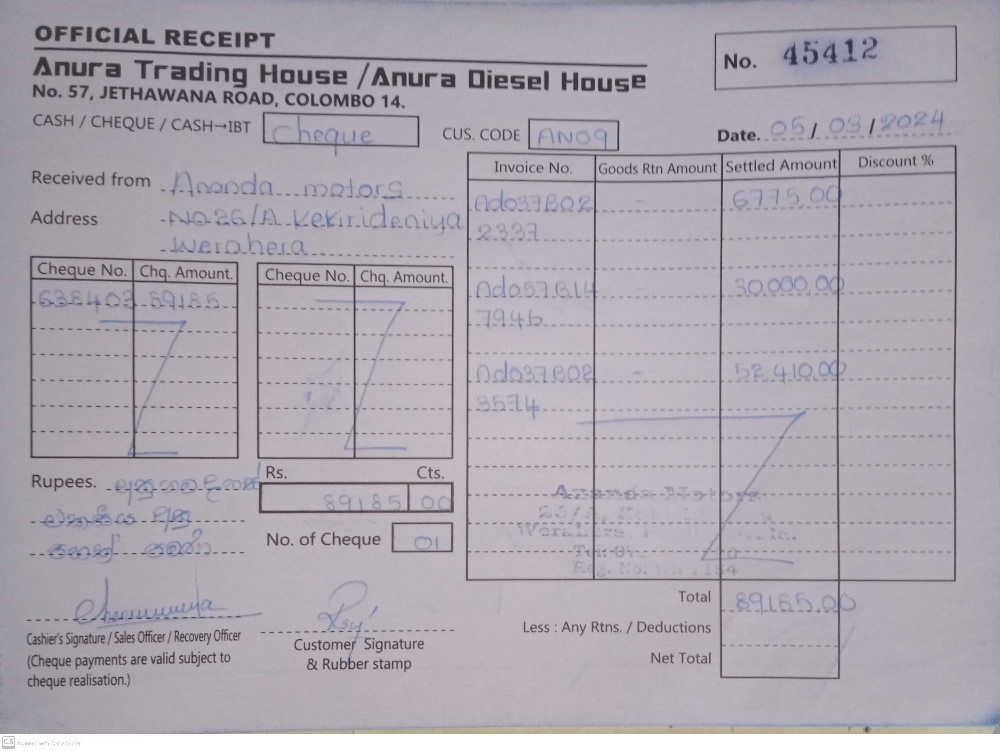 OFFICIAL RECEIPT
Anura Trading House / Anura Diesel House
No. 57, JETHAWANA ROAD, COLOMBO 14.
No. 45412
CASH / CHEQUE / CASH→IBT Cheque
CUS. CODE AN09
Date. 05/03/2024
Received from Ananda motors
Address NO 26/A Kekirideniya
Werahera
Cheque No. Chq. Amount.
638403 89185
Cheque No. Chq. Amount.
Invoice No. Goods Rtn Amount Settled Amount Discount %
Ad037B02 - 6775.00
2337
Ad057B14 - 30,000.00
7946
Ad037B02 - 52,410.00
3574
Rupees.
Rs. Cts.
89185 00
No. of Cheque 01
Ananda Motors
Total 89185.00
Less : Any Rtns. / Deductions
Net Total
Cashier's Signature / Sales Officer / Recovery Officer
(Cheque payments are valid subject to
cheque realisation.)
Customer Signature
& Rubber stamp
CS